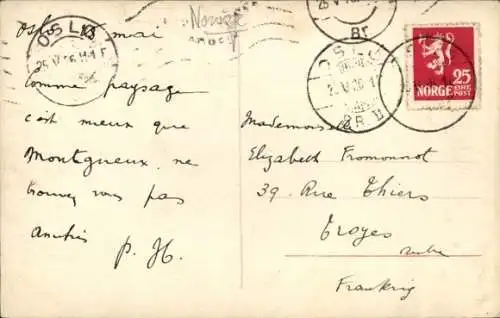 Oslo 25 mai
Comme paysage
c'est mieux que
Montgueux. ne
trouvez vous pas
Amitiés
P. H.
Norvège
OSLO
OSLO
NORGE
25
ØRE
POST
Mademoiselle
Elizabeth Fromonnot
39. Rue Thiers
Troyes
Aube
Frankrig